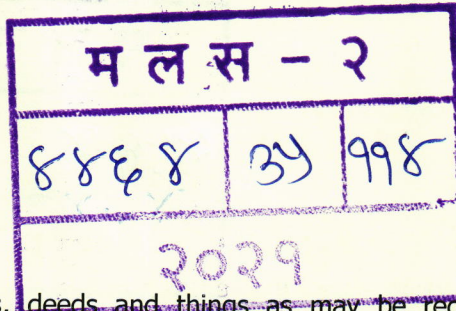 म ल स - २
४४६४ ३५ ११४
२०२१
deeds and things as may be